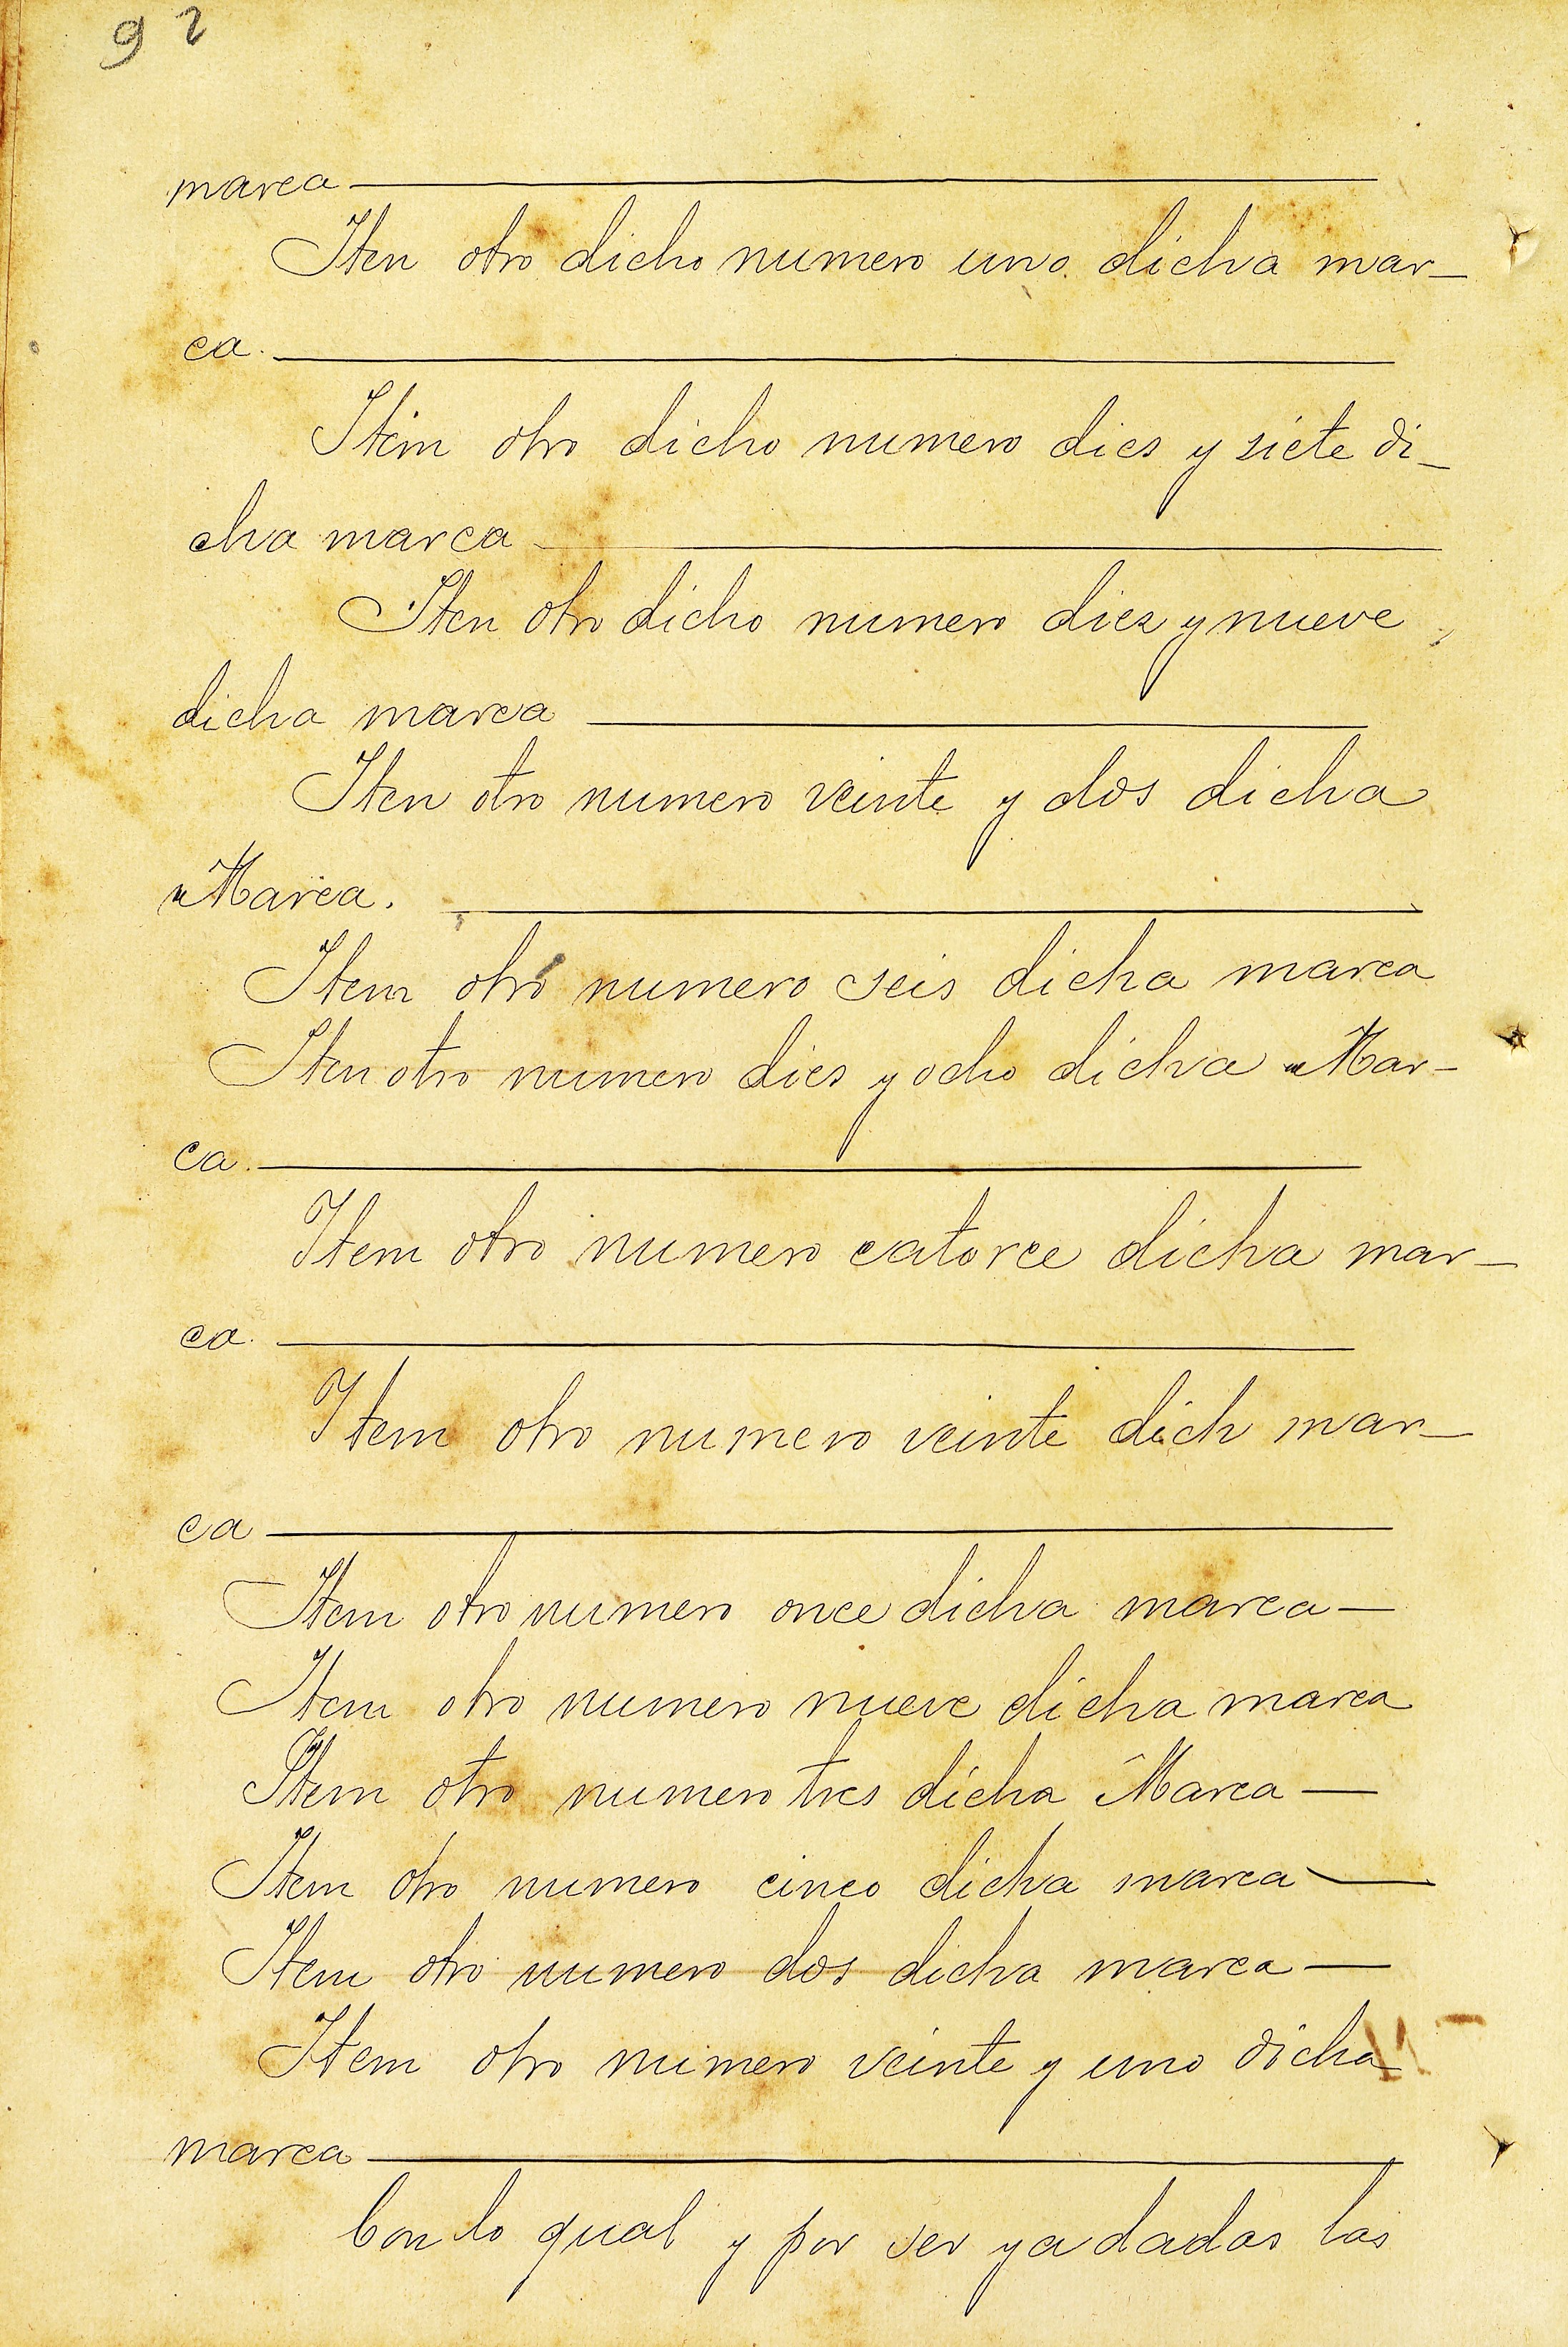 92
marca
Iten otro dicho numero uno dicha mar-
ca.
Item otro dicho numero dies y siete di-
cha marca
Iten otro dicho numero diez y nueve
dicha marca
Iten otro numero veinte y dos dicha
Marca.
Item otro numero seis dicha marca
Iten otro numero dies y ocho dicha Mar-
ca.
Item otro numero catorce dicha mar-
ca.
Item otro numero veinte dich mar-
ca
Item otro numero once dicha marca
Item otro numero nueve dicha marca
Item otro numero tres dicha Marca
Item otro numero cinco dicha marca
Item otro numero dos dicha marca
Item otro numero veinte y uno dicha
marca
Con lo qual y por ser ya dadas las